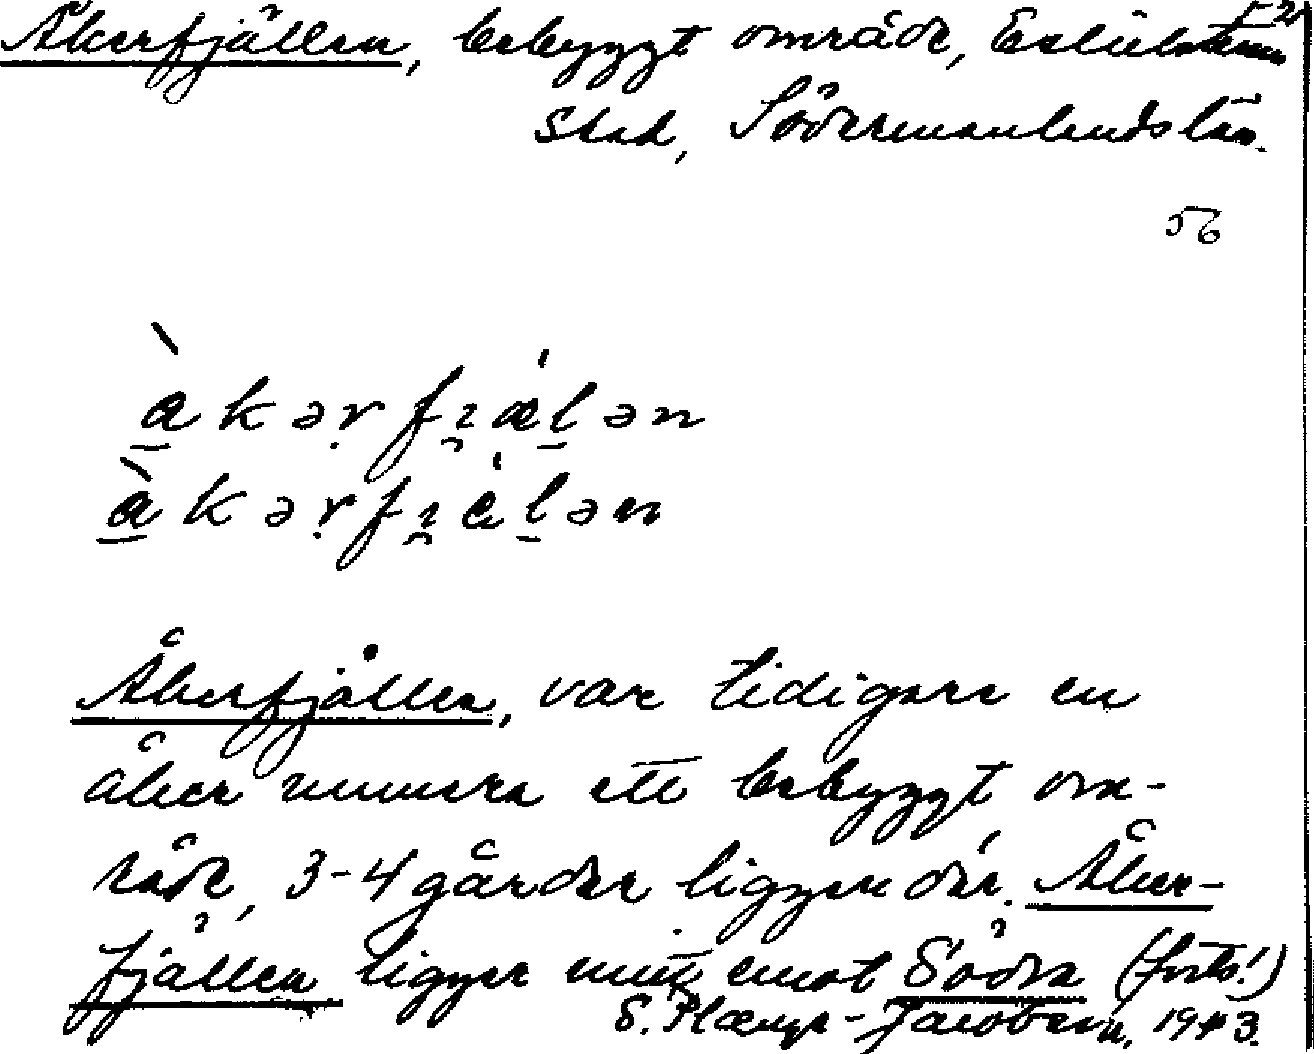 Åkerfjällen, bebyggt område, Eskilstuna
stad, Södermanlands län.
56
àkərfi̯ælən
àkərfi̯elən
Åkerfjällen, var tidigare en
åker numera ett bebyggt om-
råde, 3-4 gårdar ligger där. Åker-
fjällen ligger mitt emot Södra (forts!)
1943.